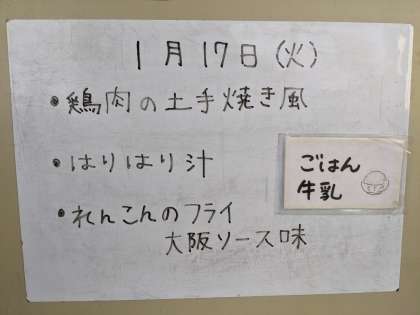 1月17日(火)
•鶏肉の土手焼き風
•はりはり汁
•れんこんのフライ
大阪ソース味
ごはん
牛乳